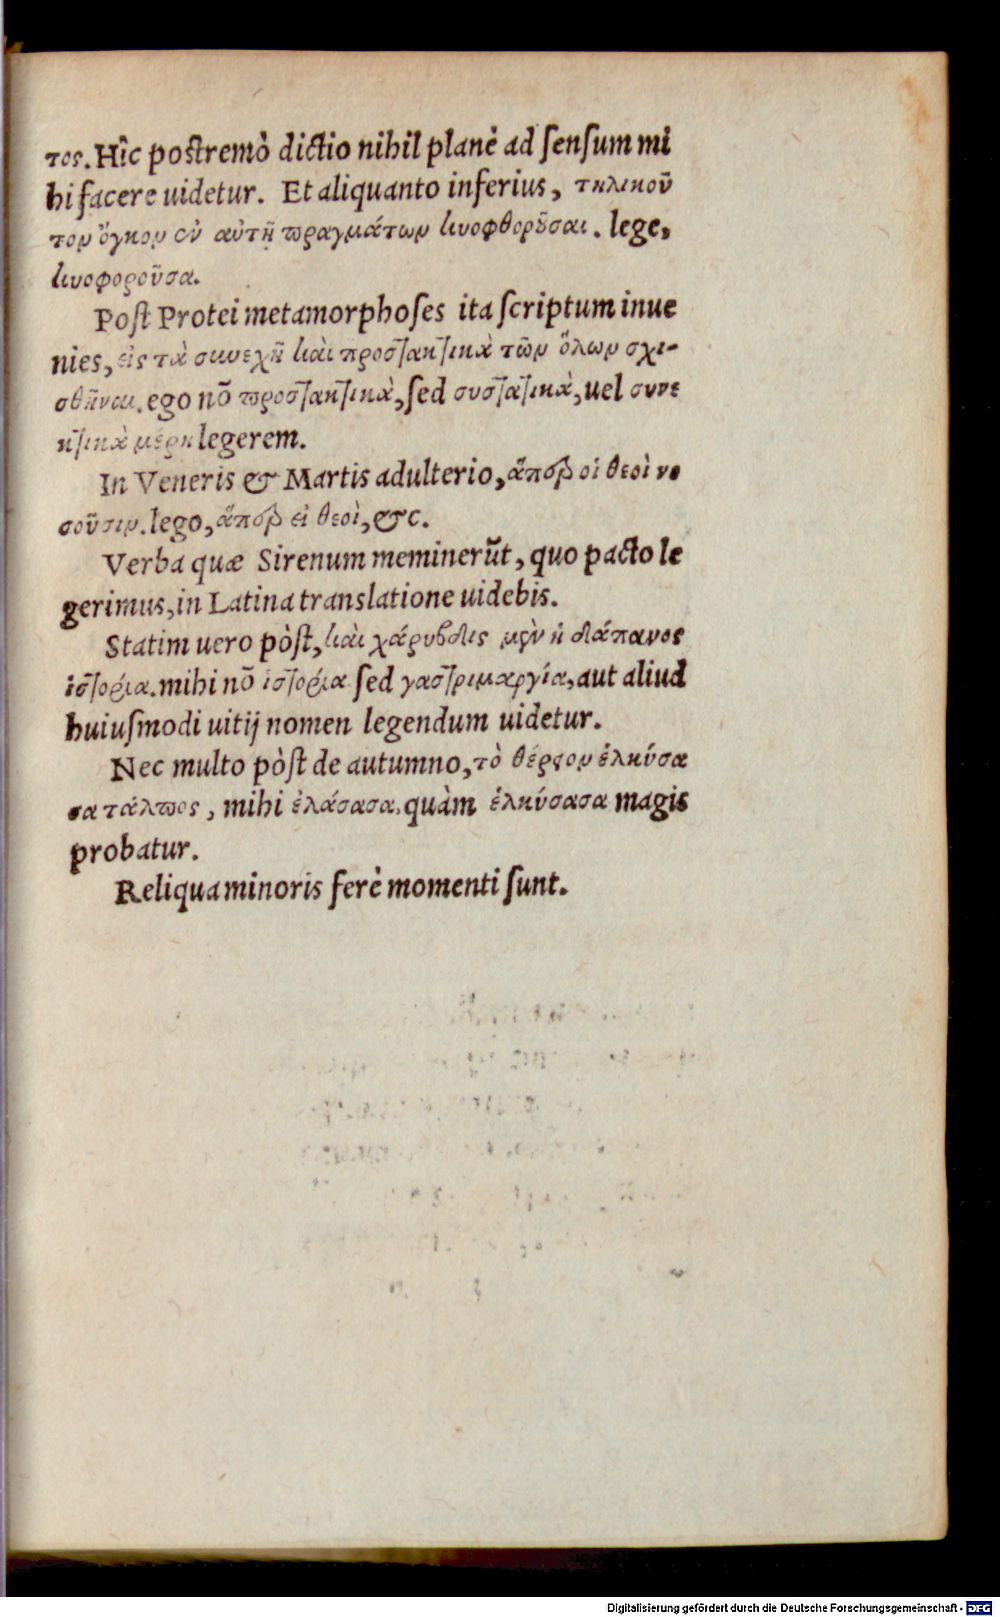 τος. Hîc postremò dictio nihil planè ad sensum mi
hi facere uidetur. Et aliquanto inferius, τηλικοῦ
τον ὄγκον ἐν αὐτῇ πραγμάτων κυοφθοροῦσαι. lege,
κυοφοροῦσα.
Post Protei metamorphoses ita scriptum inue
nies, εἰς τὰ συνεχῆ καὶ προστακτικὰ τῶν ὅλων σχι-
σθῆναι. ego nõ προστακτικὰ, sed συστατικὰ, uel συνε
κτικὰ μέρη legerem.
In Veneris & Martis adulterio, ἅπερ οἱ θεοὶ νο
σοῦσιν. lego, ἅπερ εἰ θεοὶ, &c.
Verba quæ Sirenum meminerũt, quo pacto le
gerimus, in Latina translatione uidebis.
Statim uero pòst, καὶ χάρυβδις μὲν ἡ δάπανος
ἱστορία. mihi nõ ἱστορία sed γαστριμαργία, aut aliud
huiusmodi uitij nomen legendum uidetur.
Nec multo pòst de autumno, τὸ θέρεον ἑλκύσα
σα τάλπος, mihi ἐλάσασα, quàm ἑλκύσασα magis
probatur.
Reliqua minoris ferè momenti sunt.
Digitalisierung gefördert durch die Deutsche Forschungsgemeinschaft - DFG